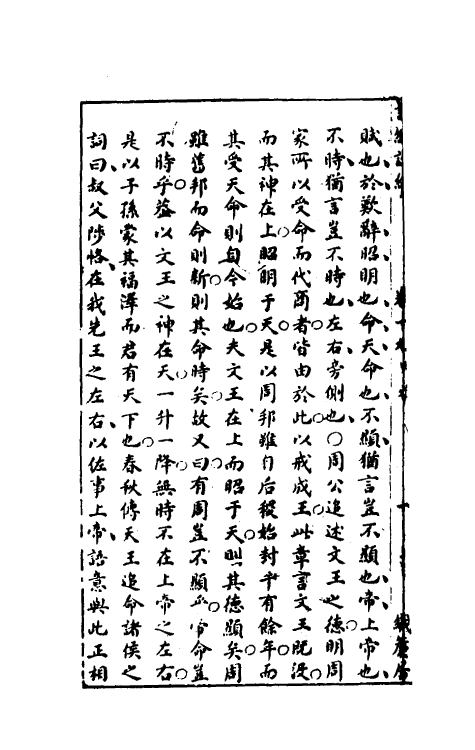 賦也於歎辭昭明也命天命也不顯猶言豈不顯也帝上帝也
不時猶言豈不時也左右旁側也○周公追述文王之德明周
家所以受命而代商者皆由於此以戒成王此章言文王既沒
而其神在上昭明于天是以周邦雖自后稷始封千有餘年而
其受天命則自今始也夫文王在上而昭于天則其德顯矣周
雖舊邦而命則新則其命時矣故又曰有周豈不顯乎帝命豈
不時乎蓋以文王之神在天一升一降無時不在上帝之左右
是以子孫蒙其福澤而君有天下也春秋傳天王追命諸侯之
詞曰叔父陟恪在我先王之左右以佐事上帝語意與此正相